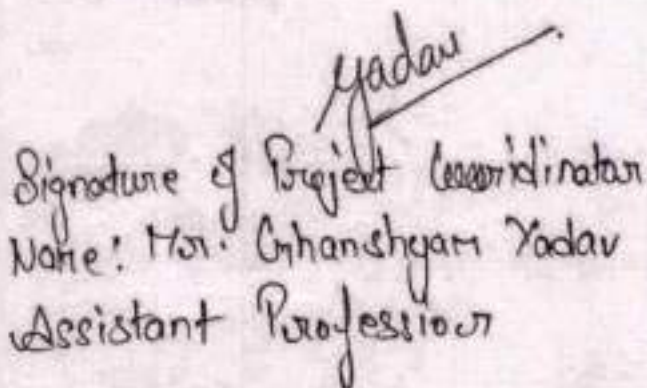 Yadav
Signature of Project Cooordinator
Name: Mr. Ghanshyam Yadav
Assistant Professior